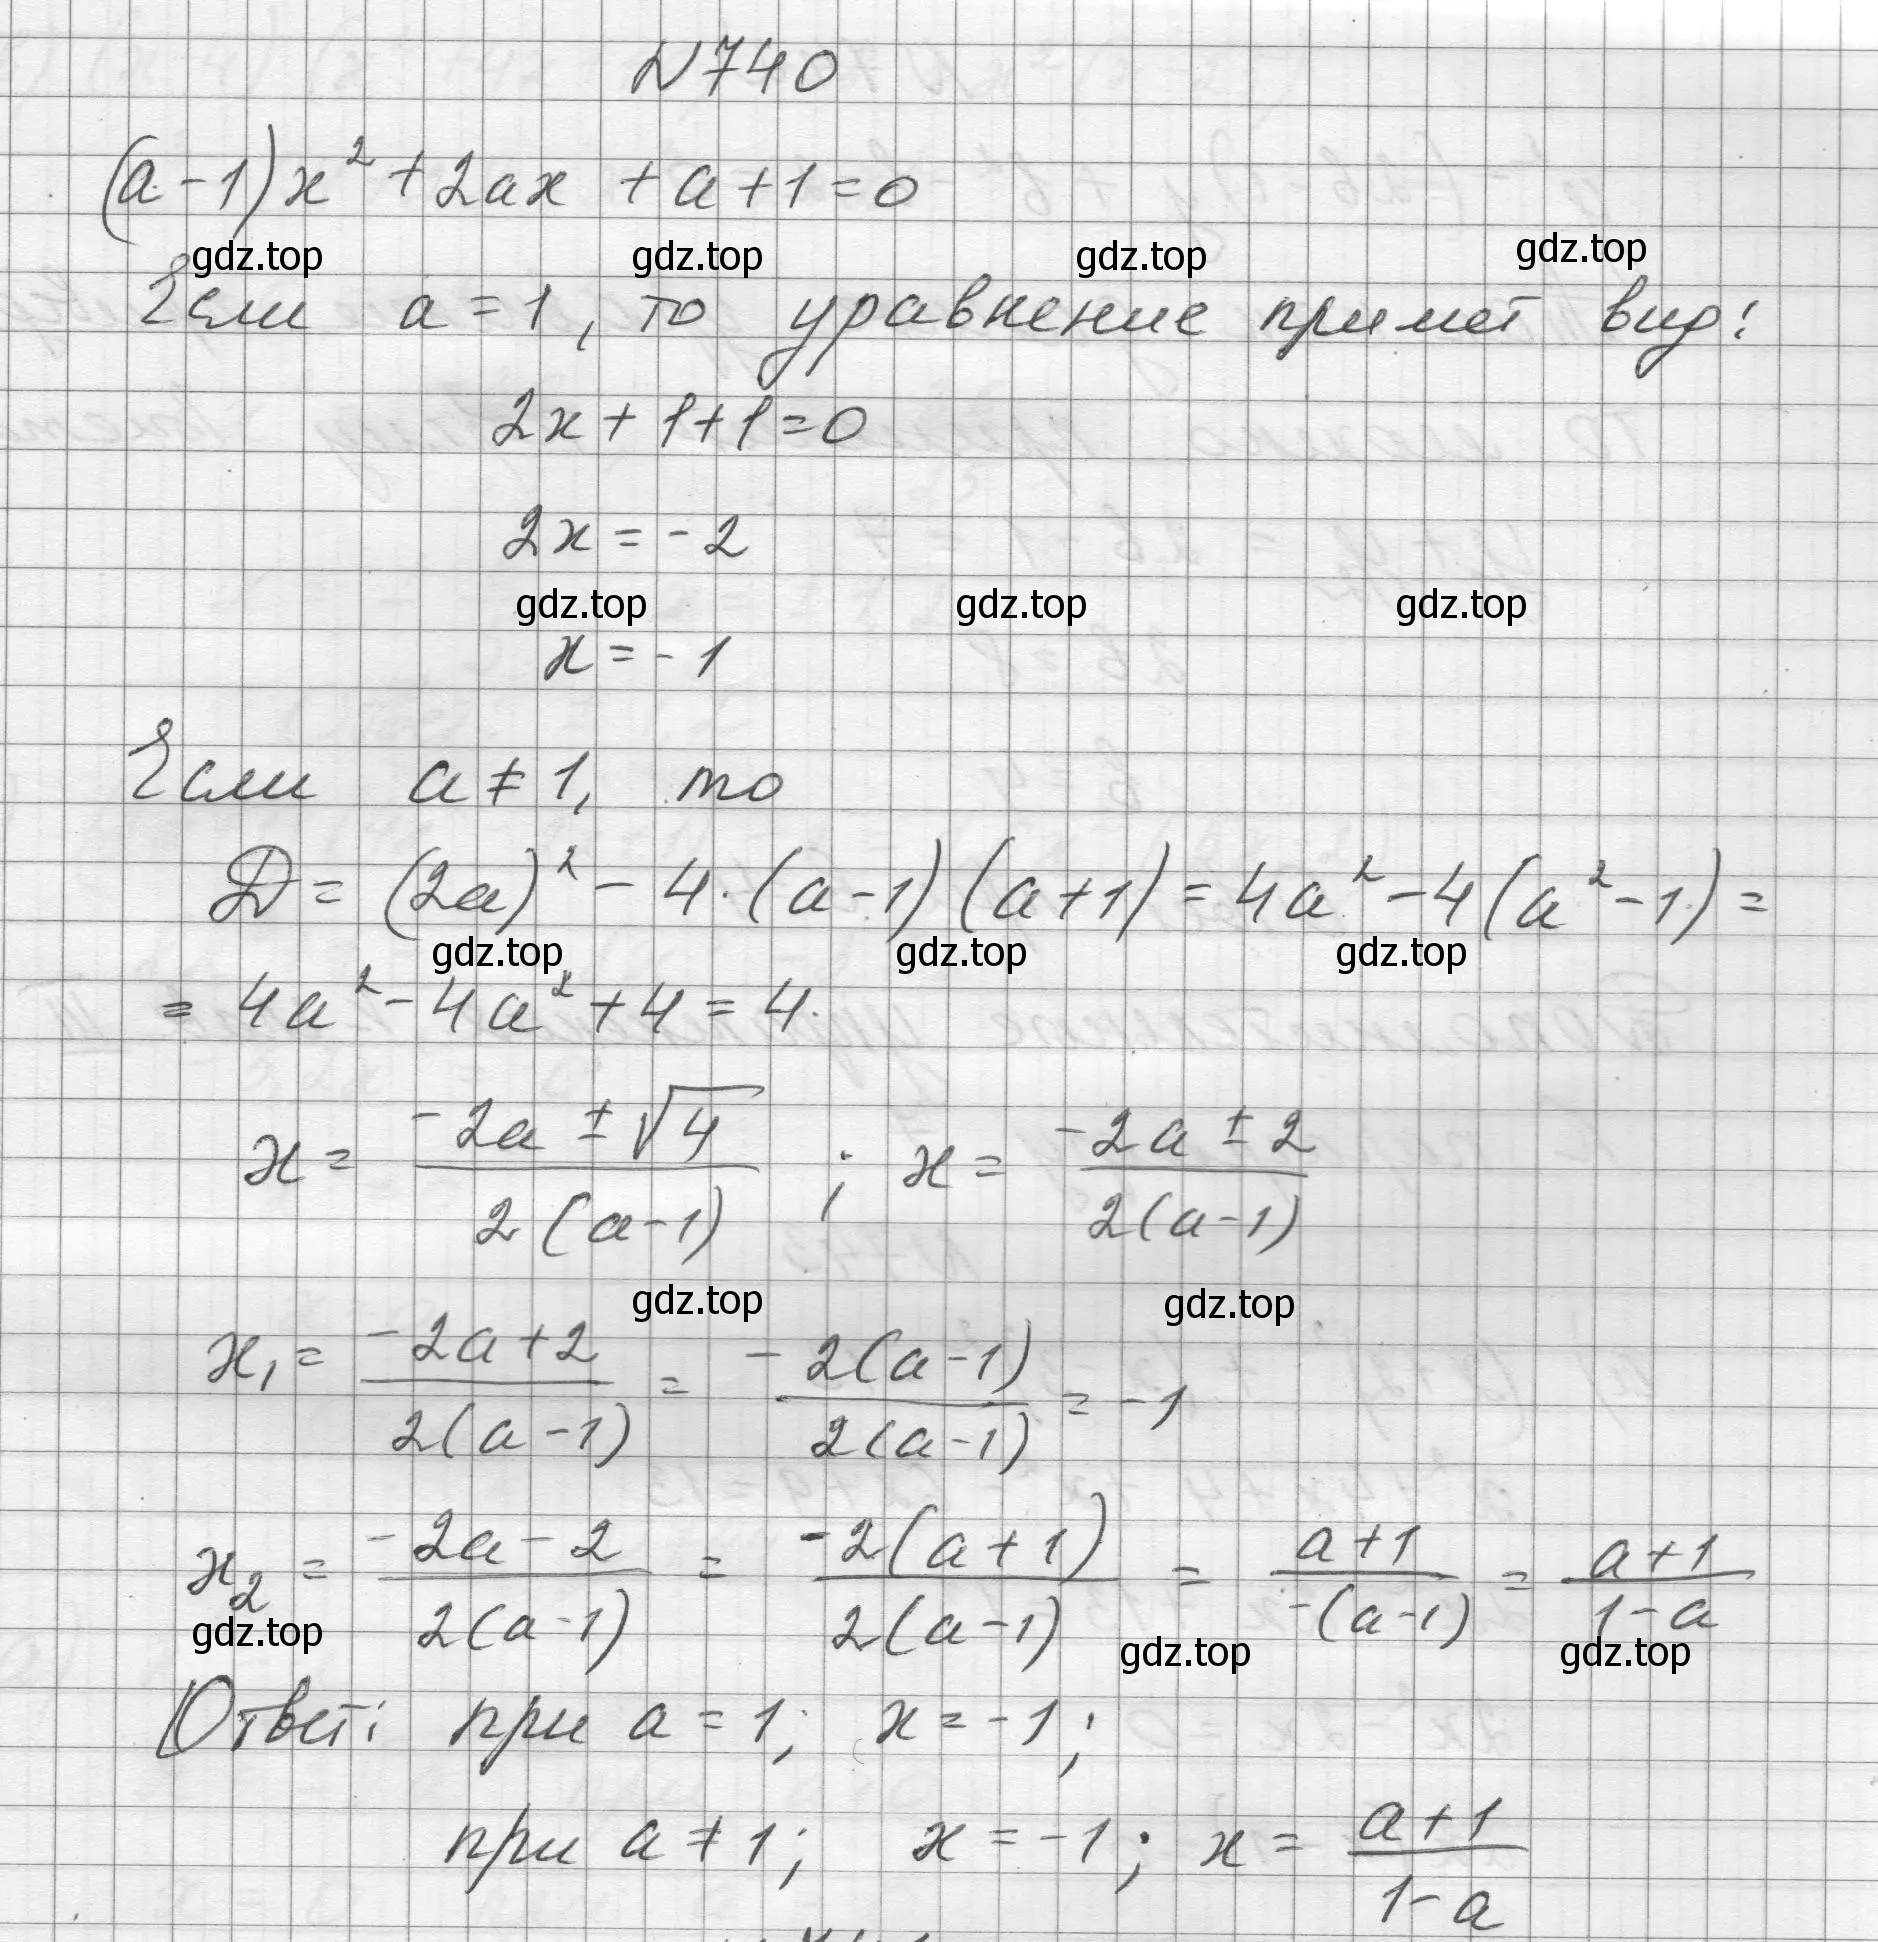 N 740
(a-1)x² + 2ax + a + 1 = 0
gdz.top gdz.top gdz.top gdz.top
Если a = 1, то уравнение примет вид:
2x + 1 + 1 = 0
2x = -2
gdz.top gdz.top gdz.top
x = -1
Если a ≠ 1, то
D = (2a)² - 4·(a-1)(a+1) = 4a² - 4(a²-1) =
gdz.top gdz.top gdz.top
= 4a² - 4a² + 4 = 4.
x = (-2a ± √4)/(2(a-1)) ; x = (-2a ± 2)/(2(a-1))
gdz.top gdz.top
x₁ = (-2a+2)/(2(a-1)) = -(2(a-1))/(2(a-1)) = -1
x₂ = (-2a-2)/(2(a-1)) = (-2(a+1))/(2(a-1)) = (a+1)/(-(a-1)) = (a+1)/(1-a)
gdz.top gdz.top gdz.top
Ответ: при a = 1; x = -1;
при a ≠ 1; x = -1; x = (a+1)/(1-a)